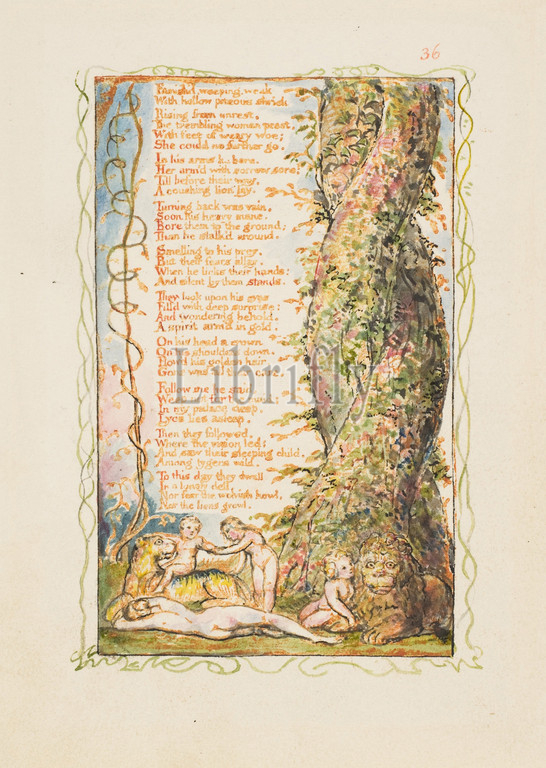 36
Famish'd, weeping, weak
With hollow piteous shriek
Rising from unrest,
The trembling woman prest,
With feet of weary woe;
She could no further go.
In his arms he bore.
Her arm'd with sorrow sore;
Till before their way,
A couching lion lay.
Turning back was vain,
Soon his heavy mane,
Bore them to the ground;
Then he stalk'd around.
Smelling to his prey,
But their fears allay,
When he licks their hands:
And silent by them stands.
They look upon his eyes
Fill'd with deep surprise:
And wondering behold,
A spirit arm'd in gold.
On his head a crown
On his shoulders down,
Flow'd his golden hair
Gone was all their care.
Follow me he said,
Weep not for the maid;
In my palace deep,
Lyca lies asleep.
Then they followed,
Where the vision led;
And saw their sleeping child,
Among tygers wild.
To this day they dwell
In a lonely dell
Nor fear the wolvish howl,
Nor the lions growl.
Librifly